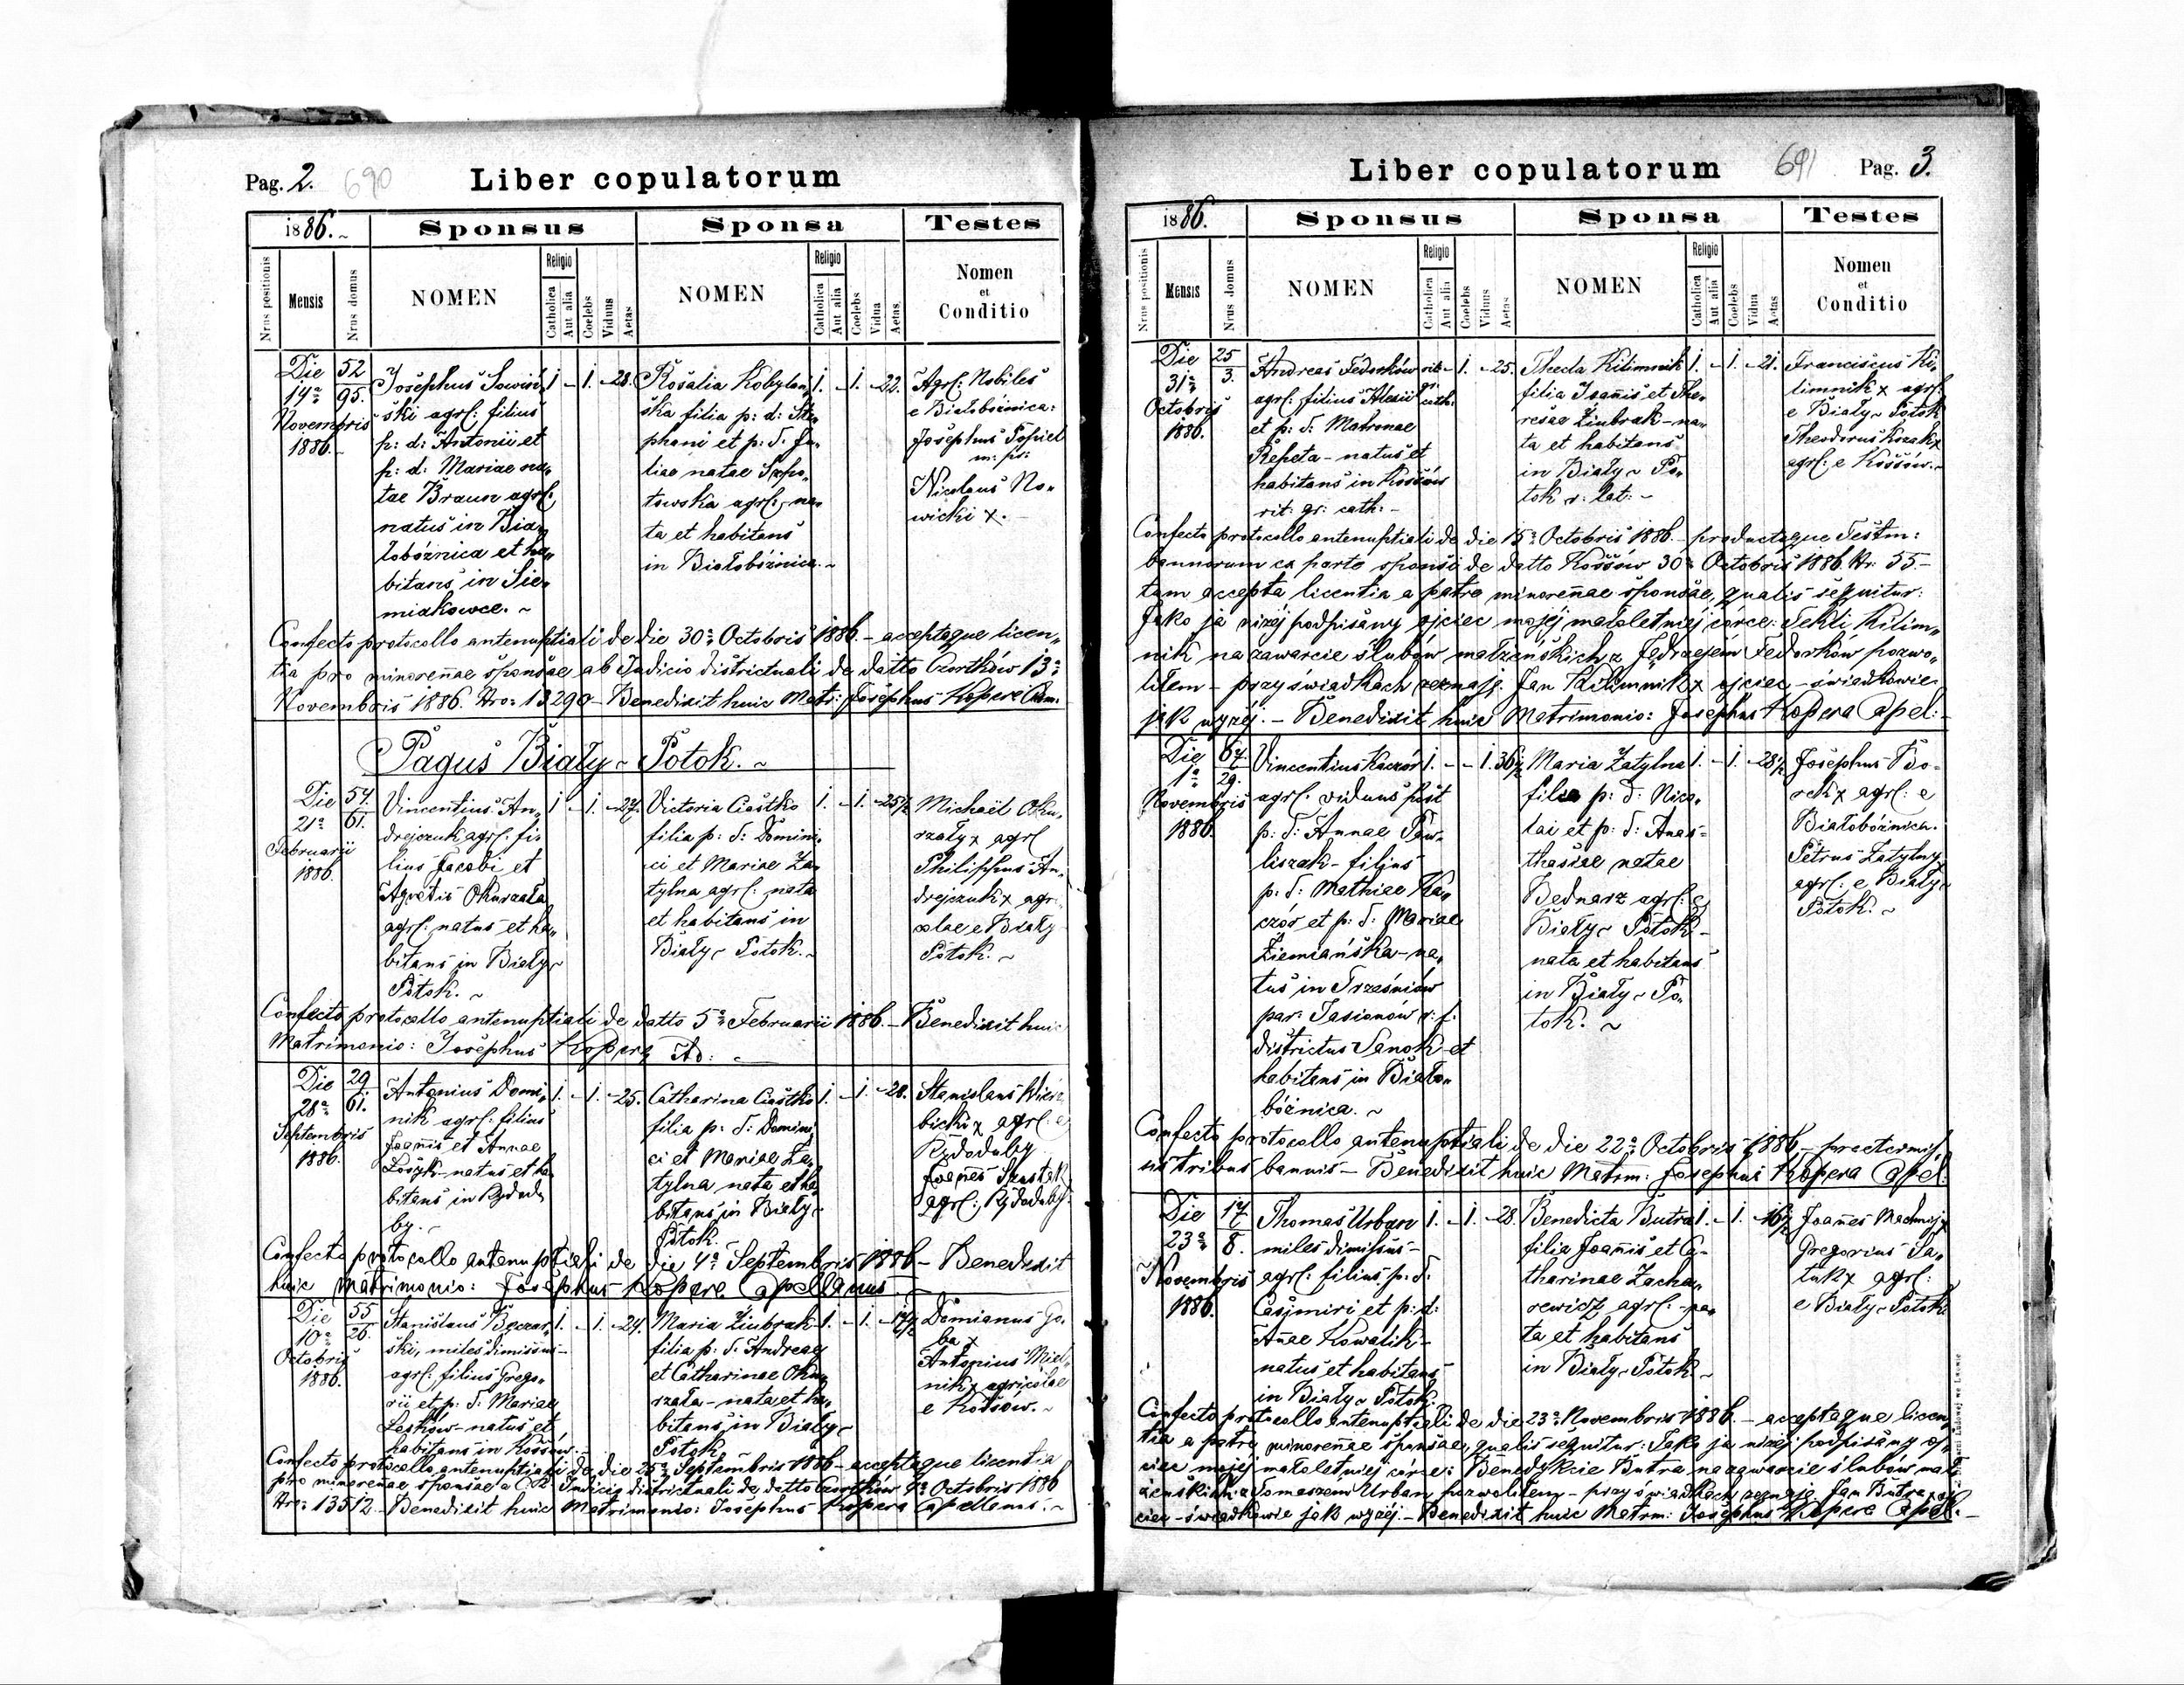 Pag. 2. 690 Liber copulatorum
1886. Sponsus Sponsa Testes
Nrus positionis Mensis Nrus domus NOMEN Religio Catholica Aut alia Coelebs Viduus Aetas NOMEN Religio Catholica Aut alia Coelebs Vidua Aetas Nomen et Conditio
Die 14a Novembris 1886.
52
95.
Josephus Sowiń„
ski agrl: filius
p: d: Antonii et
p: d: Mariae na„
tae Braun agrl:
natus in Bia„
łobóżnica et ha„
bitans in Sie„
miakowce. ~
1 - 1. - 28.
Rosalia Kobylań„
ska filia p: d: Ste„
phani et p: d: Ju„
liae natae Szpo„
towska agrl: na„
ta et habitans
in Białobóżnica. ~
1. - 1. - 22.
Agrl: Nobiles
e Białobóżnica:
Josephus Popiel
m: ps:
Nicolaus No„
wicki x.
Confecto protocollo antenuptiali de die 30a Octobris 1886. - acceptaque licen„
tia pro minorennae sponsae ab Judicio districtuali de datto Czortków 13a
Novembris 1886. Nro: 13290 - Benedixit huic Matr: Josephus Kopera
Pagus Biały ~ Potok. ~
Die 21a Februarii 1886.
54.
61.
Vincentius An„
drejczuk agrl: fi„
lius Jacobi et
Agnetis Okurzała
agrl: natus et ha„
bitans in Biały ~
Potok. ~
1 - 1. - 27.
Victoria Ciastko
filia p: d: Domini„
ci et Mariae Za„
tylna agrl: nata
et habitans in
Biały ~ Potok. ~
1. - 1. - 25½
Michaël Oku„
rzały x agrl
Philippus An„
drejczuk x agri„
colae e Biały
Potok. ~
Confecto protocollo antenuptiali de datto 5a Februarii 1886. - Benedixit huic
Matrimonio: Josephus Kopera
Die 28a Septembris 1886.
29
61.
Antonius Domi„
nik agrl: filius
Joannis et Annae
natus et ha„
bitans in Rydodu„
by. ~
1. - 1. - 25.
Catharina Ciastko
filia p: d: Domini„
ci et Mariae Za„
tylna nata et ha„
bitans in Biały ~
Potok.
1. - 1. - 28.
Stanislaus Wierz„
bicki x agrl: e
Rydoduby
Joannes Szustak
agrl: Rydoduby.
Confecto protocollo antenuptiali de die 4a Septembris 1886 - Benedixit
huic Matrimonio: Josephus Kopera Capellanus
Die 10a Octobris 1886.
55
26.
Stanislaus Bęczar„
ski, miles dimissus -
agrl: filius Grego„
rii et p: d: Mariae
Leśków - natus et
habitans in Kossów.
1. - 1. - 24.
Maria Ziubrak
filia p: d: Andreae
et Catharinae Oku„
rzała - nata et ha„
bitans in Biały ~
Potok.
1. - 1. - 17½
Demianus Go„
ba x
Antonius Miel„
nik x agricolae
e Kossów. ~
Confecto protocollo antenuptiali de die 25a Septembris 1886 - acceptaque licentia
pro minorennae sponsae a Judicio districtuali de datto Czortków Octobris 1886
Nro: 13512. - Benedixit huic Matrimonio: Josephus Kopera Capellanus. ~
Liber copulatorum 691 Pag. 3.
1886. Sponsus Sponsa Testes
Nrus positionis Mensis Nrus domus NOMEN Religio Catholica Aut alia Coelebs Viduus Aetas NOMEN Religio Catholica Aut alia Coelebs Vidua Aetas Nomen et Conditio
Die 31a Octobris 1886.
25
3.
Andreas Fedorków
agrl: filius Alexii
et p: d: Matronae
Repeta - natus et
habitans in Kossów
rit: gr: cath: -
rit. gr. cath: - 1. - 25.
Thecla Kilimnik
filia Joannis et The„
resae Ziubrak - na„
ta et habitans
in Biały ~ Po„
tok r: lat: ~
1. - 1. - 21.
Franciscus Ki„
limnik x agrl:
e Biały ~ Potok
Theodorus Kozak x
agrl: e Kossów. ~
Confecto protocollo antenuptiali de die 15a Octobris 1886. - productaque Testm:
bannorum ex parte sponsi de datto Kossów 30a Octobris 1886. Nr: 55. -
tum accepta licentia a patre minorennae sponsae, qualis sequitur:
Jako ja niżej podpisany ojciec mojej małoletniej córce: Tekli Kilim„
nik na zawarcie ślubów małżeńskich z Jędrzejem Fedorków pozwo„
liłem - przy świadkach zeznaję. Jan Kilimnik x ojciec - świadkowie
jak wyżej. - Benedixit huic Matrimonio: Josephus Kopera Capel: -
Die 1a Novembris 1886.
67.
29.
Vincentius Kaczór
agrl: viduus post
p: d: Annae Paw„
liszak - filius
p: d: Mathiae Ka„
czór et p: d: Mariae
Ziemiańska - na„
tus in Trześniów
par: Jasionów r. l.
districtus Sanok et
habitans in Biało„
bóżnica. ~
1. - - 1. 36½
Maria Zatylna
filia p: d: Nico„
lai et p: d: Anas„
thasiae natae
Bednarz agrl: e
Biały ~ Potok -
nata et habitans
in Biały ~ Po„
tok. ~
1. - 1. - 28½
Josephus Bo„
rek x agrl: e
Białobóżnica.
Petrus Zatylny
agrl: e Biały ~
Potok. ~
Confecto protocollo antenuptiali de die 22a Octobris 1886 - praetermis„
sis tribus bannis - Benedixit huic Matrm: Josephus Kopera Capel:
Die 23a Novembris 1886.
17
8.
Thomas Urban
miles dimissus -
agrl: filius p: d:
Casimiri et p: d:
Annae Kowalik -
natus et habitans
in Biały ~ Potok.
1. - 1. - 28.
Benedicta Butra
filia Joannis et Ca„
tharinae Zacha„
rewicz agrl: - na„
ta et habitans
in Biały ~ Potok ~
1. - 1. - 16½
Joannes Machnij x
Gregorius Sa„
tuk x agrl:
e Biały ~ Potok.
Confecto protocollo antenuptiali de die 23a Novembris 1886. - acceptaque licen„
tia a patre minorennae sponsae, qualis sequitur: Jako ja niżej podpisany oj„
ciec mojej małoletniej córce: Benedykcie Butra na zawarcie ślubów mał„
żeńskich z Tomaszem Urban pozwoliłem - przy świadkach zeznaję. Jan Butra x oj„
ciec - świadkowie jak wyżej. - Benedixit huic Matrm: Josephus Kopera Capel. -